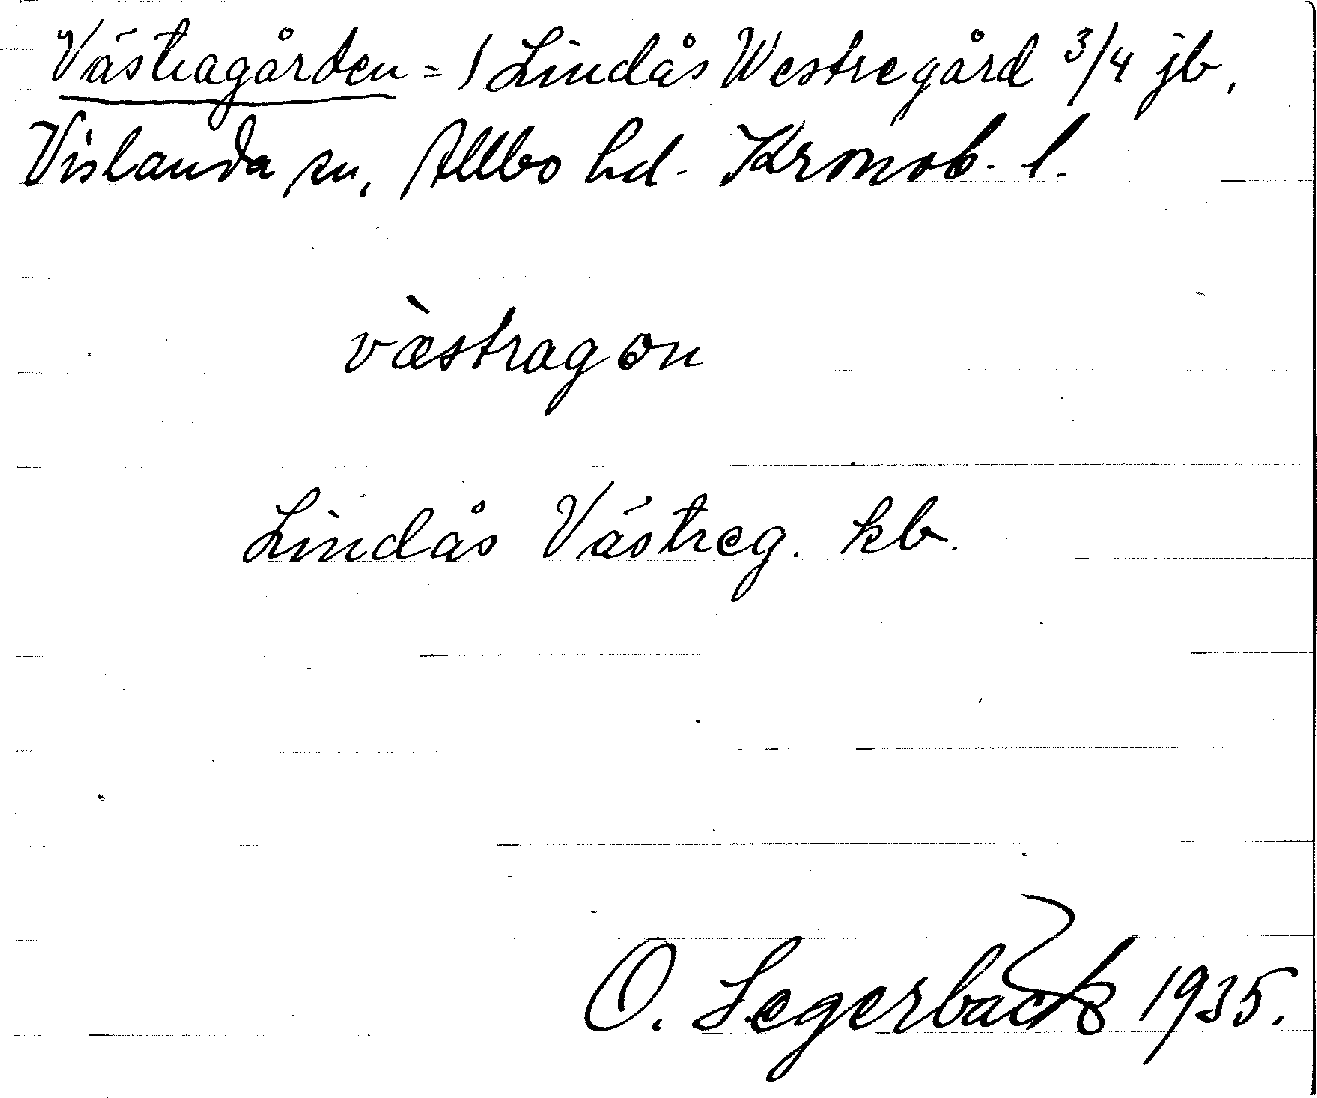 Västragården = / Lindås Westregård 3/4 jb,
Vislanda sn, Allbo hd. Kronob. l.
vàstragon
Lindås Västreg. kb.
O. Segerbäck 1935.